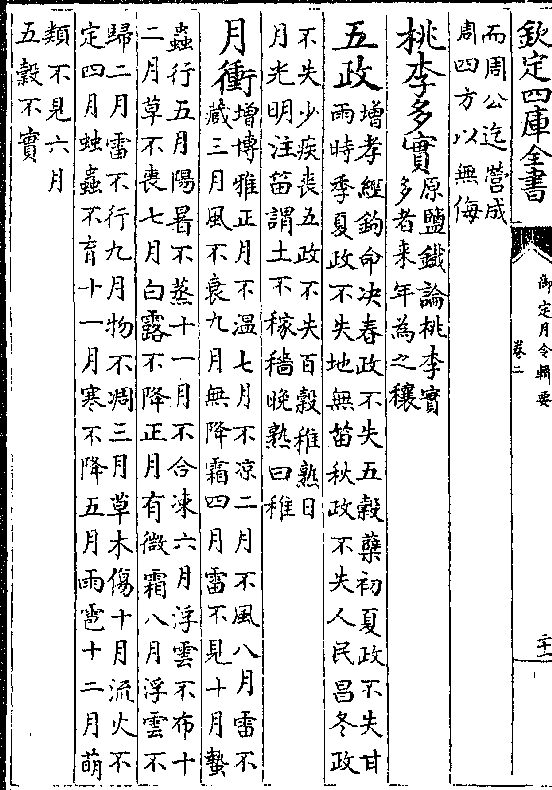 欽定四庫全書
御定月令輯要
卷二
二十一
而周公迄營成
周四方以無侮
桃李多實原鹽鐵論桃李實
多者来年為之穰
五政增孝經鉤命决春政不失五穀蘖初夏政不失甘
雨時季夏政不失地無菑秋政不失人民昌冬政
不失少疾喪五政不失百穀稚熟日
月光明注菑謂土不稼穡晚熟曰稚
月衝增博雅正月不溫七月不凉二月不風八月雷不
藏三月風不衰九月無降霜四月雷不見十月蟄
蟲行五月陽暑不蒸十一月不合凍六月浮雲不布十
二月草不喪七月白露不降正月有微霜八月浮雲不
歸二月雷不行九月物不凋三月草木傷十月流火不
定四月蚰蟲不育十一月寒不降五月雨雹十二月萌
類不見六月
五穀不實